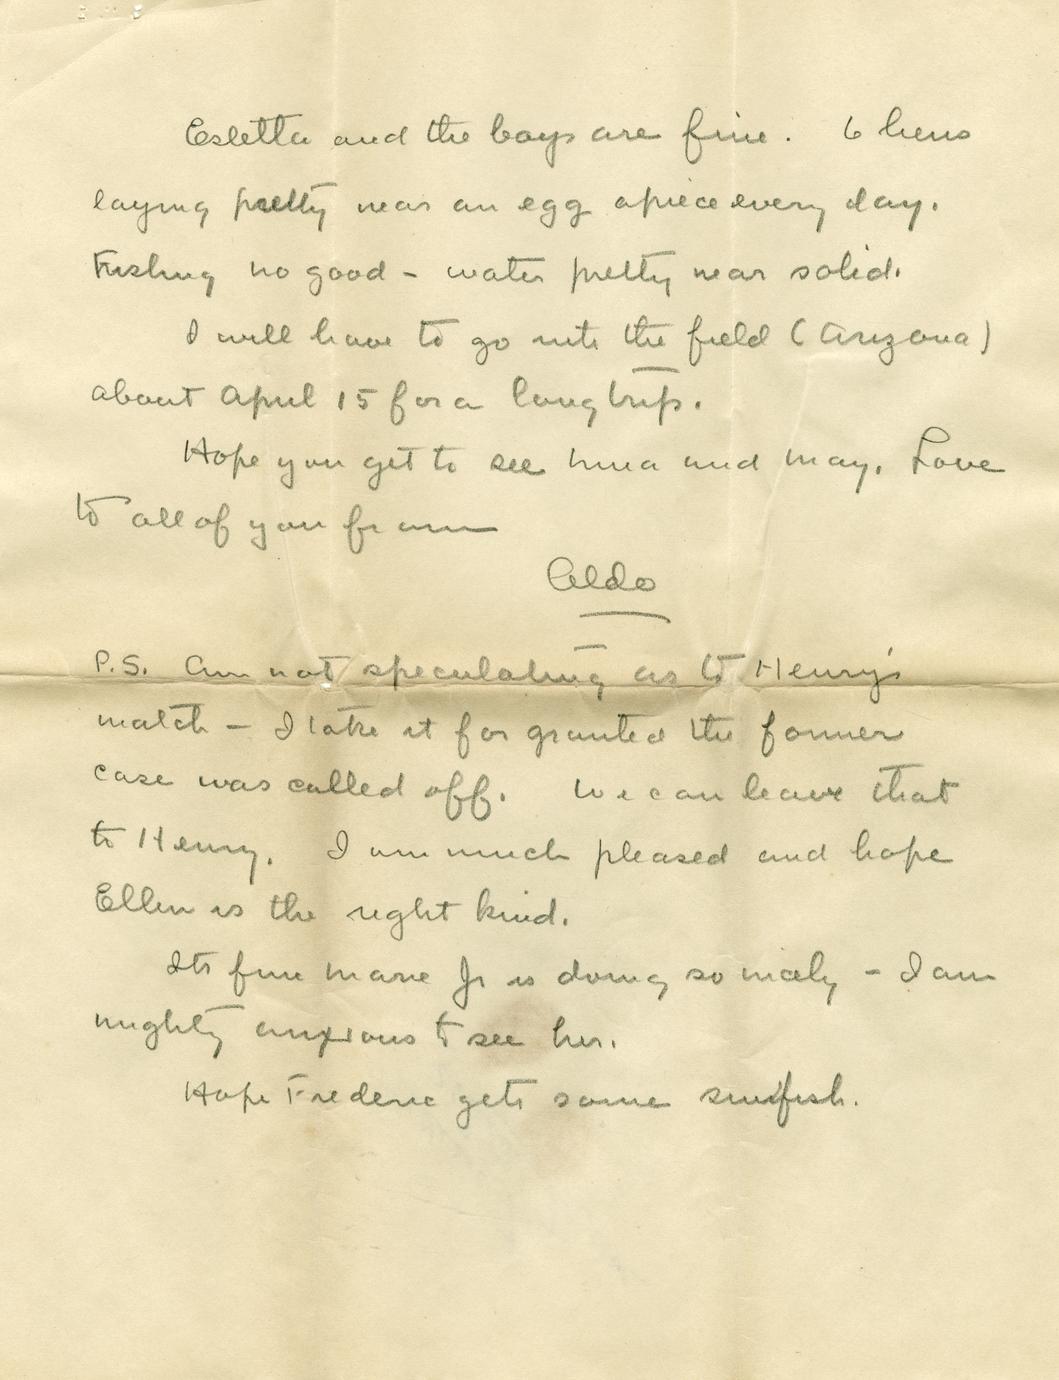 Esletta and the boys are fine. 6 hens
laying pretty near an egg apiece every day.
Fishing no good - water pretty near solid.
I will have to go into the field (Arizona)
about April 15 for a long trip.
Hope you get to see and May. Love
to all of you from
Aldo
P.S. Am not speculating as to Henry's
match - I take it for granted the former
case was called off. We can leave that
to Henry. I am much pleased and hope
Ellen is the right kind.
Its fine Marie Jr is doing so nicely - I am
mighty anxious to see her.
Hope Frederic gets some sunfish.